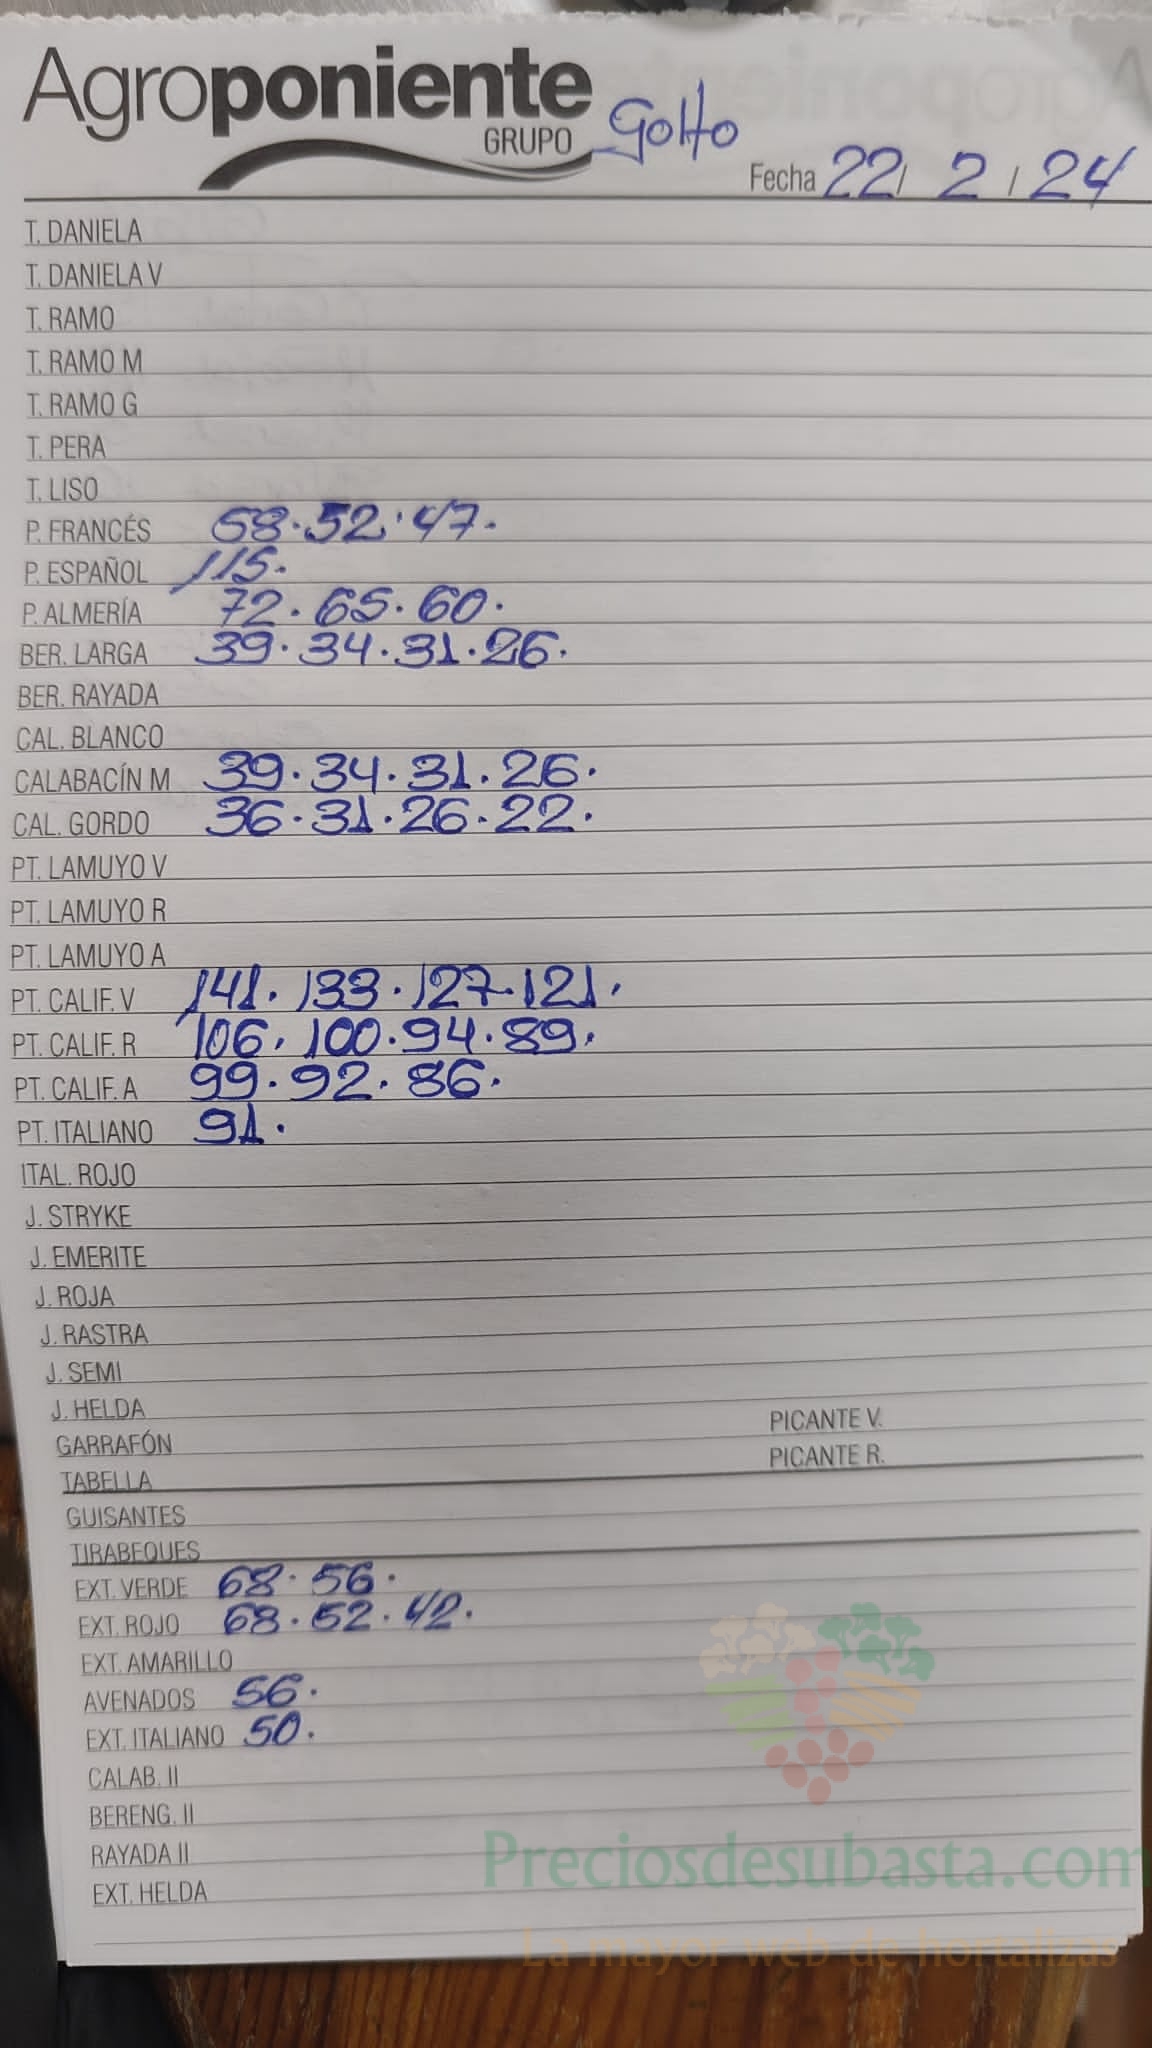 Agroponiente
GRUPO
Golfo
Fecha 22/ 2 / 24
T. DANIELA
T. DANIELA V
T. RAMO
T. RAMO M
T. RAMO G
T. PERA
T. LISO
P. FRANCÉS 68·52·47·
P. ESPAÑOL 115·
P. ALMERÍA 72·65·60·
BER. LARGA 39·34·31·26·
BER. RAYADA
CAL. BLANCO
CALABACÍN M 39·34·31·26·
CAL. GORDO 36·31·26·22·
PT. LAMUYO V
PT. LAMUYO R
PT. LAMUYO A
PT. CALIF. V 141·133·127·121·
PT. CALIF. R 106·100·94·89·
PT. CALIF. A 99·92·86·
PT. ITALIANO 91·
ITAL. ROJO
J. STRYKE
J. EMERITE
J. ROJA
J. RASTRA
J. SEMI
J. HELDA
PICANTE V.
GARRAFÓN
PICANTE R.
TABELLA
GUISANTES
TIRABEQUES
EXT. VERDE 68·56·
EXT. ROJO 68·52·42·
EXT. AMARILLO
AVENADOS 56·
EXT. ITALIANO 50·
CALAB. II
BERENG. II
RAYADA II
EXT. HELDA
Preciosdesubasta.com
La mayor web de hortalizas